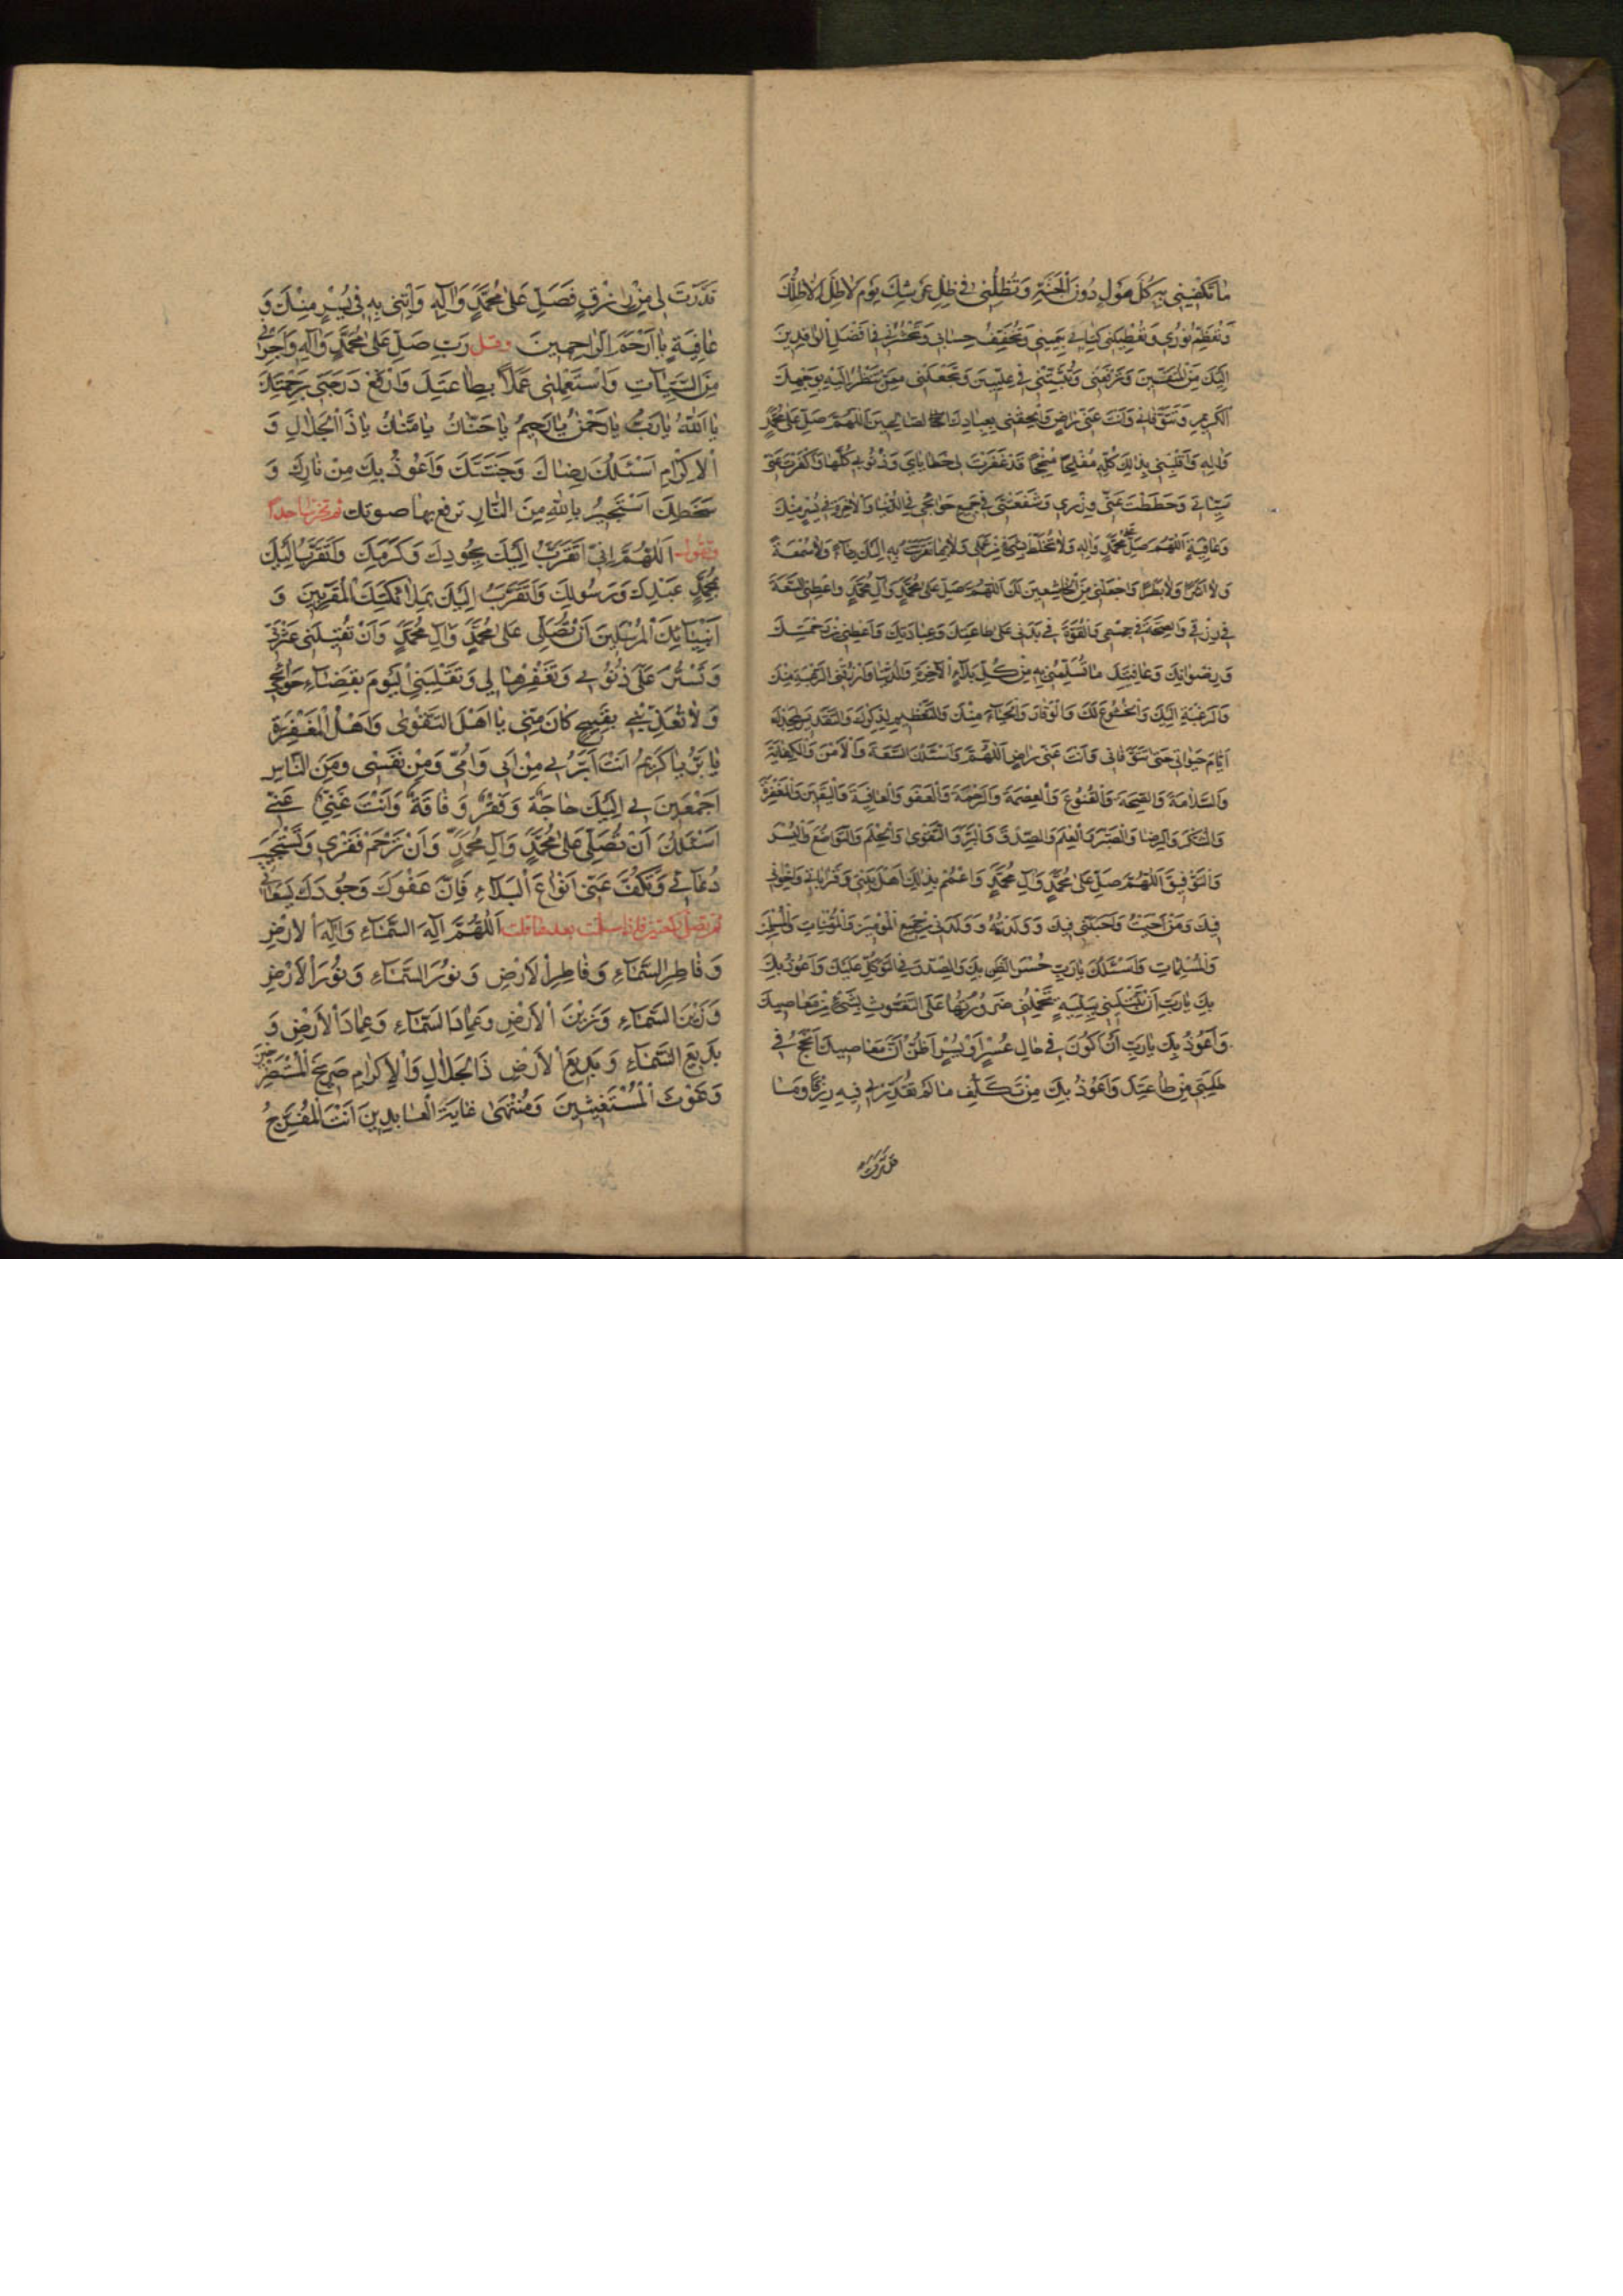 ما تكفيني به كل هول دون الجنة وتظلني في ظل عرشك يوم لا ظل الا ظلك
وتعظم نوري وتعطيني كتابي بيميني وتخفف حسابي وتحشرني في افضل الوافدين
اليك من المتقين وتثبتني في عليين وتجعلني ممن تنظر اليه بوجهك
الكريم وتتوفاني وانت عني راض والحقني بعبادك الصالحين اللهم صل على محمد
واله واقلبني بذلك كله مفلحا منجحا قد غفرت لي خطاياي وذنوبي كلها وكفرت عني
سيئاتي وحططت عني وزري وشفعتني في جميع حوائجي في الدنيا والاخرة في يسر منك
وعافية اللهم صل على محمد واله ولا تخلط بشئ من عملي ولا بما تقربت به اليك رياء ولا سمعة
ولا اشرا ولا بطرا واجعلني من الخاشعين لك اللهم صل على محمد وآل محمد واعطني السعة
في رزقي والصحة في جسمي والقوة في بدني على طاعتك وعبادتك واعطني من رحمتك
ورضوانك وعافيتك ما تسلمني به من كل بلاء الآخرة والدنيا وارزقني الرهبة منك
والرغبة اليك والخشوع لك والوقار والحياء منك والتعظيم لذكرك والتقديس لمجدك
ايام حيواتي حتى تتوفاني وانت عني راض اللهم واسئلك السعة والامن والكفاية
والسلامة والصحة والقنوع والعصمة والرحمة والعفو والعافية واليقين والمغفرة
والشكر والرضا والصبر والعلم والصدق والبر والتقوى والحلم والتواضع واليسر
والتوفيق اللهم صل على محمد وآل محمد واعمم بذلك اهل بيتي وقراباتي واخواني
فيك ومن احببت واحبني فيك وولدته وولدني من جميع المؤمنين والمؤمنات والمسلمين
والمسلمات واسئلك يا رب حسن الظن بك والصدق في التوكل عليك واعوذ بك
بك يا رب ان تبتليني ببلية تحملني ضرورتها على التغوث بشئ من معاصيك
واعوذ بك يا رب ان اكون في حال عسر او يسر اظن ان معاصيك انجح في
طلبتي من طاعتك واعوذ بك من تكلف ما لم تقدر لي فيه رزقا وما
قدرت
قدرت لي من رزق فصل على محمد وآله وآتني به في يسر منك و
عافية يا ارحم الراحمين وقل رب صل على محمد وآله واجرني
من السيئات واستعملني عملا بطاعتك وارفع درجتي برحمتك
يا الله يا رب يا رحمن يا رحيم يا حنان يا منان يا ذا الجلال و
الاكرام اسئلك رضاك وجنتك واعوذ بك من نارك و
سخطك استجير بالله من النار ترفع بها صوتك ثم تخر ساجدا
وتقول اللهم اني اتقرب اليك بجودك وكرمك واتقرب اليك
بمحمد عبدك ورسولك واتقرب اليك بملائكتك المقربين و
انبيائك المرسلين ان تصلي على محمد وآل محمد وان تقيلني عثرتي
وتستر على ذنوبي وتغفرها لي وتقلبني اليوم بقضاء حوائجي
ولا تعذبني بقبيح كان مني يا اهل التقوى واهل المغفرة
يا بر يا كريم انت ابر بي من ابي وامي ومن نفسي ومن الناس
اجمعين بي اليك حاجة وفقر وفاقة وانت غني عني
اسئلك ان تصلي على محمد وآل محمد وان ترحم فقري وتستجيب
دعائي وتكف عني انواع البلاء فان عفوك وجودك يسعاني
ثم تصلي ركعتين فاذا سلمت بعدهما قلت اللهم اله السماء واله الارض
وفاطر السماء وفاطر الارض ونور السماء ونور الارض
وزين السماء وزين الارض وعماد السماء وعماد الارض و
بديع السماء وبديع الارض ذا الجلال والاكرام صريخ المستصرخين
وغوث المستغيثين ومنتهى غاية العابدين انت المفرج